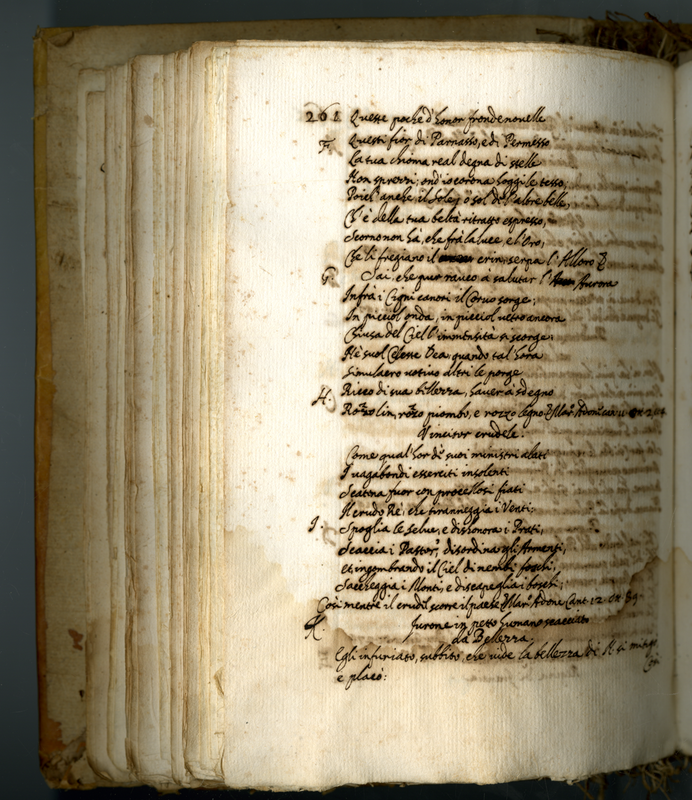 261 Queste poche d'honor fronde nouelle
F. Questi fior di Parnasso, e di Permesso
La tua chioma real degna di stelle
Non sprezzi, ond'io corona hoggi le tesso,
Poich' anche il Sole, ò sol de l'altre belle,
Ch' è della tua beltà ritratto espresso,
Scorno non hà, che frà la luce e l'Oro,
Che li fregiano il crin, serpa l'Alloro
G. Sai, che pur rauco à salutar l' Aurora
Infrà i Cigni canori il Coruo sorge;
In picciol onda, in picciol vetro ancora
Chiusa del Ciel l'immensità si scorge;
Nè suol Celeste Dea, quando tal'hora
Simulacro votiuo altri le porge
H. Ricco di sua bellezza, hauer à sdegno
Rozzo lin, rozzo piombo, e rozzo legno Mar: Adon:
Vincitor crudele.
Come qual'hor de suoi ministri alati
I vagabondi esserciti insolenti
Scatena fuor con procellosi fiati
Il crudo Rè, che tiranneggia i Venti;
I. Spoglia le selue, e dishonora i Prati,
Scaccia i Pastor, disordina gli Armenti,
Et ingombrando il Ciel di nembi foschi,
Saccheggia i Monti, e discapeglia i boschi;
Così mentre il crudel scorre il paese Mar: Adone Cant. 12
K. furone in petto humano scacciato
da Bellezza.
Egli infuriato, subbito, che uide la bellezza di si mitigò
e placò: